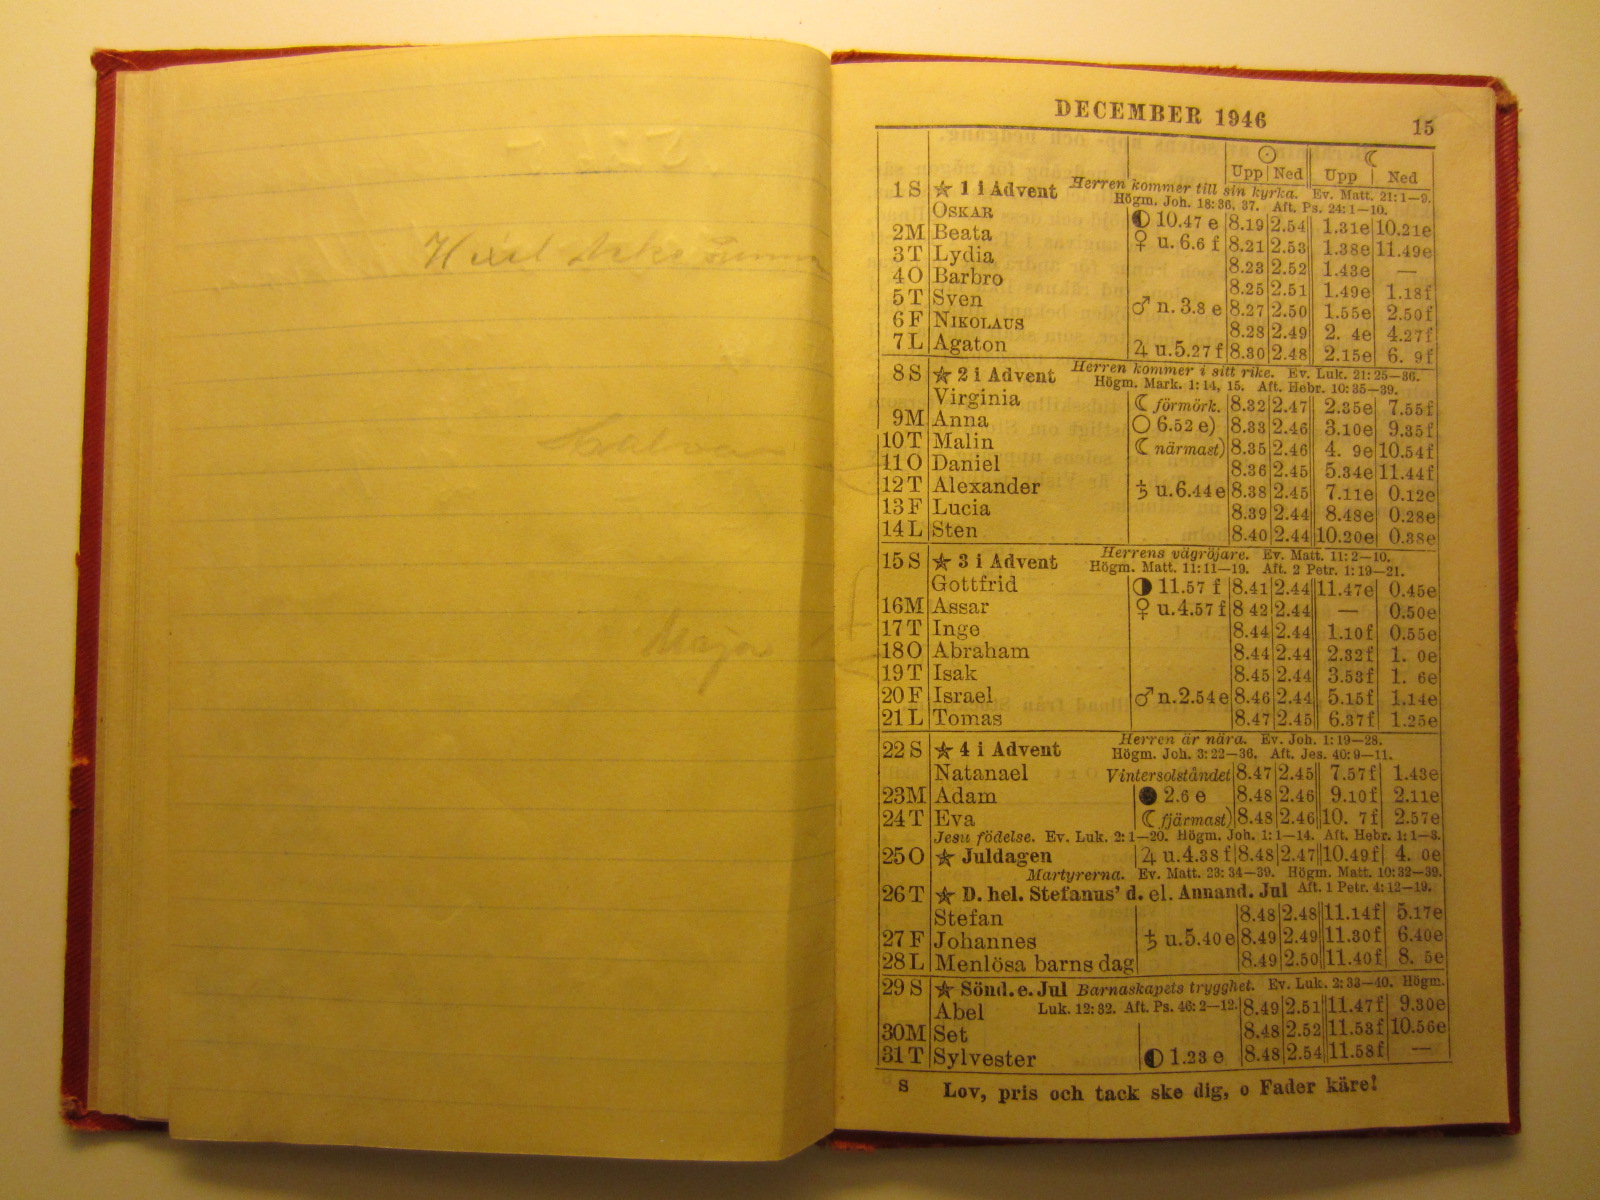 Major
DECEMBER 1946 15
☉ ☾
Upp Ned Upp Ned
1 S ★ 1 i Advent Herren kommer till sin kyrka. Ev. Matt. 21: 1—9.
Högm. Joh. 18: 36, 37. Aft. Ps. 24: 1—10.
OSKAR ◐ 10.47 e 8.19 2.54 1.31e 10.21e
2 M Beata ♀ u. 6.6 f 8.21 2.53 1.38e 11.49e
3 T Lydia 8.23 2.52 1.43e —
4 O Barbro 8.25 2.51 1.49e 1.18f
5 T Sven ♂ n. 3.8 e 8.27 2.50 1.55e 2.50f
6 F NIKOLAUS 8.28 2.49 2. 4e 4.27f
7 L Agaton ♃ u.5.27 f 8.30 2.48 2.15e 6. 9f
8 S ★ 2 i Advent Herren kommer i sitt rike. Ev. Luk. 21: 25—36.
Högm. Mark. 1: 14, 15. Aft. Hebr. 10: 35—39.
Virginia ☾ förmörk. 8.32 2.47 2.35e 7.55f
9 M Anna ○ 6.52 e) 8.33 2.46 3.10e 9.35f
10 T Malin ☾ närmast) 8.35 2.46 4. 9e 10.54f
11 O Daniel 8.36 2.45 5.34e 11.44f
12 T Alexander ♄ u.6.44e 8.38 2.45 7.11e 0.12e
13 F Lucia 8.39 2.44 8.48e 0.28e
14 L Sten 8.40 2.44 10.20e 0.38e
15 S ★ 3 i Advent Herrens vägröjare. Ev. Matt. 11: 2—10.
Högm. Matt. 11: 11—19. Aft. 2 Petr. 1: 19—21.
Gottfrid ◑ 11.57 f 8.41 2.44 11.47e 0.45e
16 M Assar ♀ u.4.57 f 8 42 2.44 — 0.50e
17 T Inge 8.44 2.44 1.10f 0.55e
18 O Abraham 8.44 2.44 2.32f 1. 0e
19 T Isak 8.45 2.44 3.53f 1. 6e
20 F Israel ♂ n.2.54 e 8.46 2.44 5.15f 1.14e
21 L Tomas 8.47 2.45 6.37f 1.25e
22 S ★ 4 i Advent Herren är nära. Ev. Joh. 1: 19—28.
Högm. Joh. 3: 22—36. Aft. Jes. 40: 9—11.
Natanael Vintersolståndet 8.47 2.45 7.57f 1.43e
23 M Adam ● 2.6 e 8.48 2.46 9.10f 2.11e
24 T Eva ☾ fjärmast) 8.48 2.46 10. 7f 2.57e
Jesu födelse. Ev. Luk. 2: 1—20. Högm. Joh. 1: 1—14. Aft. Hebr. 1: 1—3.
25 O ★ Juldagen ♃ u.4.38 f 8.48 2.47 10.49f 4. 0e
Martyrerna. Ev. Matt. 23: 34—39. Högm. Matt. 10: 32—39.
26 T ★ D. hel. Stefanus' d. el. Annand. Jul Aft. 1 Petr. 4: 12—19.
Stefan 8.48 2.48 11.14f 5.17e
27 F Johannes ♄ u.5.40 e 8.49 2.49 11.30f 6.40e
28 L Menlösa barns dag 8.49 2.50 11.40f 8. 5e
29 S ★ Sönd. e. Jul Barnaskapets trygghet. Ev. Luk. 2: 33—40. Högm.
Abel Luk. 12: 32. Aft. Ps. 46: 2—12. 8.49 2.51 11.47f 9.30e
30 M Set 8.48 2.52 11.53f 10.56e
31 T Sylvester ◐ 1.23 e 8.48 2.54 11.58f —
S Lov, pris och tack ske dig, o Fader käre!